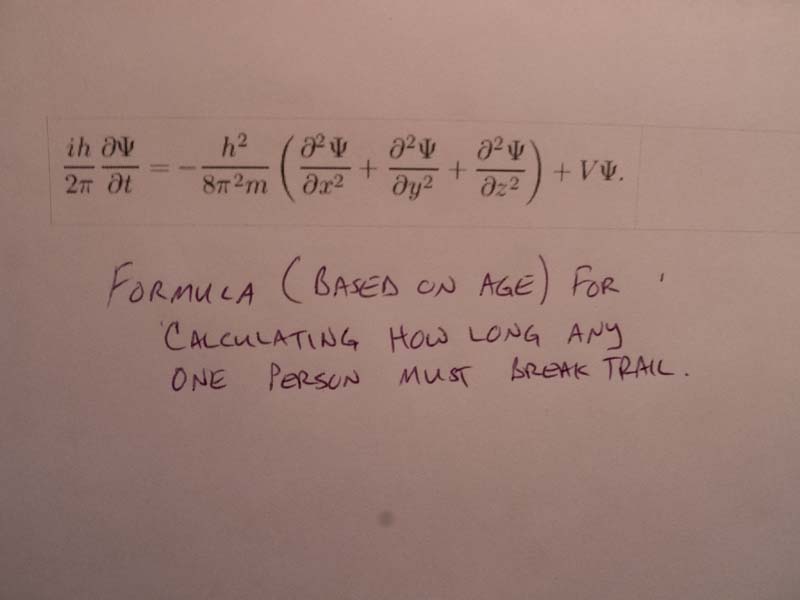 ih/2π ∂Ψ/∂t = − h²/8π²m ( ∂²Ψ/∂x² + ∂²Ψ/∂y² + ∂²Ψ/∂z² ) + VΨ.
FORMULA (BASED ON AGE) FOR
CALCULATING HOW LONG ANY
ONE PERSON MUST BREAK TRAIL.